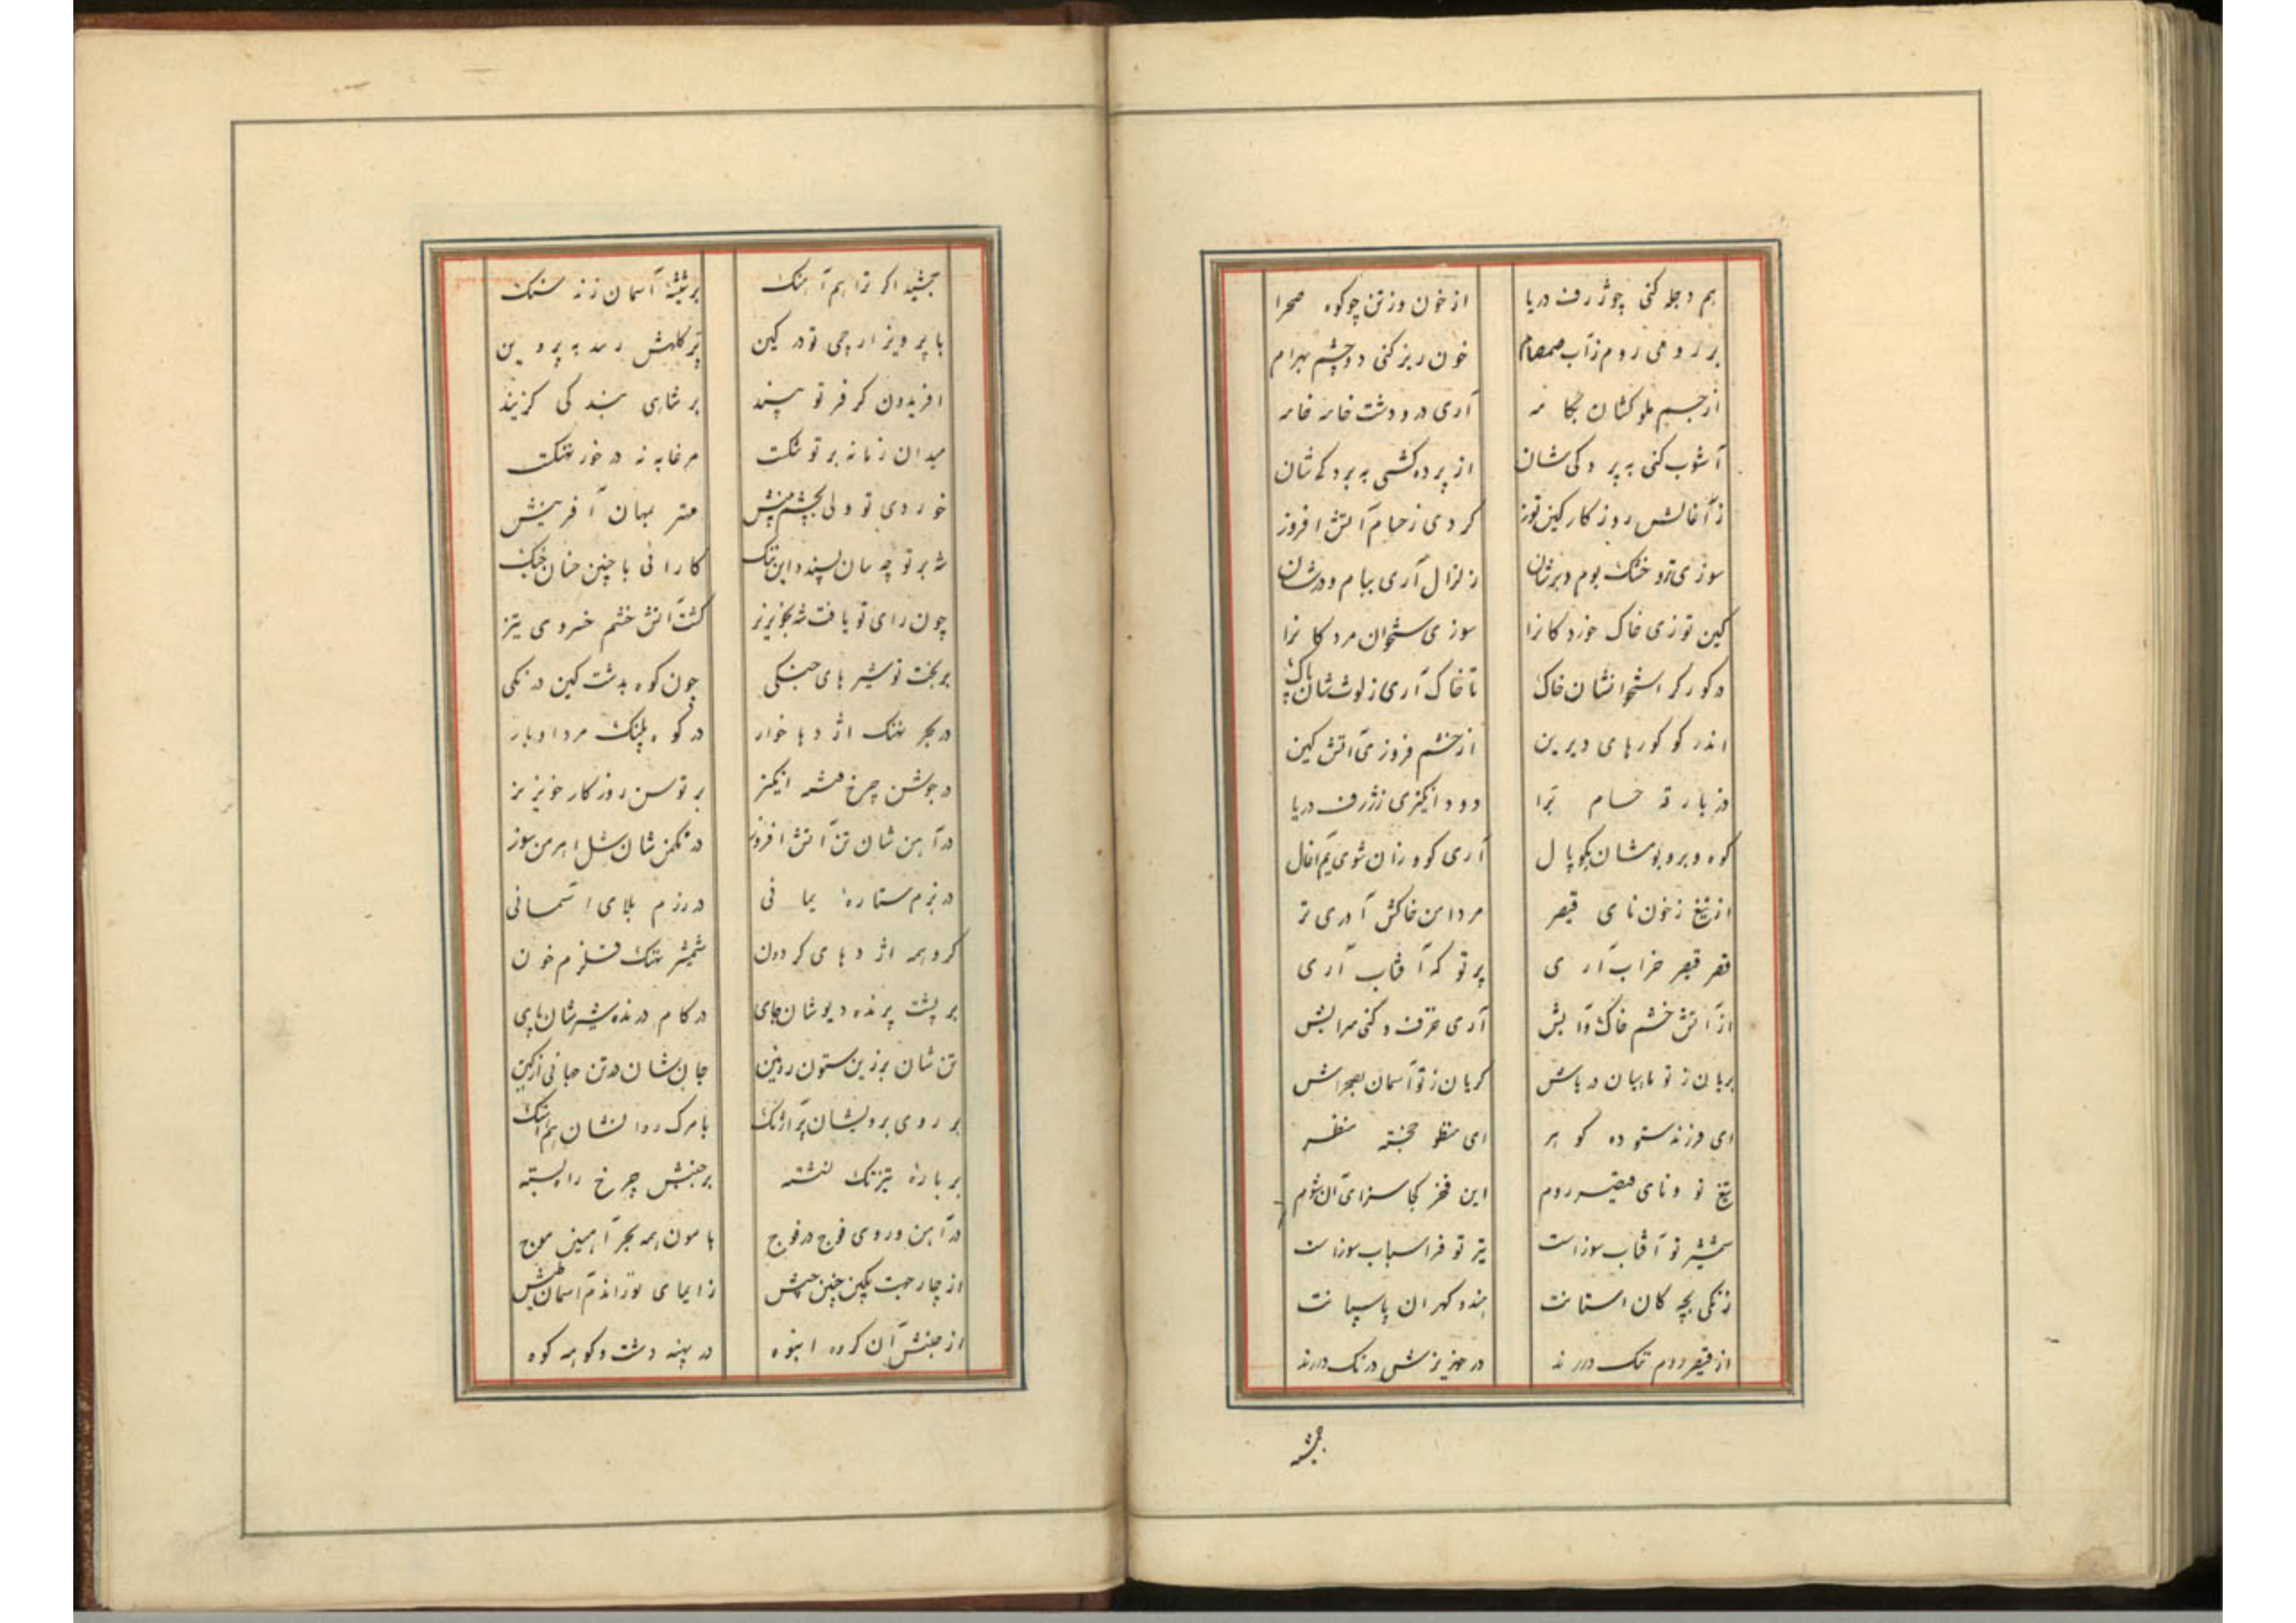 هم دجله کنی چو ژرف دریا از خون وز تن چو کوه صحرا
بر رومی روم ز آب صمصام خون ریز کنی دو چشم بهرام
از جسم ملوکشان بجا نه آری در و دشت خانه خانه
آشوب کنی به پردکی شان از پرده کشی به بردکی شان
ز آغالش روزکار کین توز کردی ز حسام آتش افروز
سوزی تر و خشک بوم و برشان زلزال آری ببام و درشان
کین توزی خاک خوردکانرا سوزی ستخوان مردکانرا
در کور کر استخوانشان خاک تا خاک آری ز لوث شان پاک
اندر کو کورهای دیرین از خشم فروزی آتش کین
در بار تو حسام ترا دود انکیزی ز ژرف دریا
کوه و بر و بومشان بکوپال آری کو و زان شوی یم آغال
از تیغ ز خون نای قیصر مر دامن خاکش آوری تر
قصر قیصر خراب آری پرتو که آفتاب آری
از آتش خشم خاک و آبش آری غرف و کنی سرابش
بریان ز تو ماهیان دریاش کریان ز تو آسمان بصحراش
ای فرزند ستوده کوهر ای منظو خجسته منظر
تیغ تو و نای قیصر روم این فخر کجا سزای آن شوم
شمشیر تو آفتاب سوزاست تیر تو فراسیاب سوزاست
زنکی بچه کان استانت هندو کهران پاسبانت
از قیصر روم تنک دارند در خیزیزش درنک دارند
جمشید
جمشید اکر ترا هم آهنک بر شیشه آسمان زند سنک
با پرویز ار چمی تو در کین پر کلهش رسد به پروین
افریدون کر فر تو بیند بر شاهی بندکی کزیند
میدان زمانه بر تو تنکت مرغابه نه در خور نهنکت
خوردی تو ولی بچشم بینش مهتر بمهان آفرینش
شه بر تو چه سان پسندد این ننک کارائی با چنین خسان جنک
چون رای تو یافت شه بخونریز کشت آتش خشم خسروی تیز
بر بخت تو شیرهای جنکی چون کوه بدشت کین درنکی
در بحر نهنک اژدها خوار در کوه پلنک مردم اوبار
در جوشن چرخ فتنه انکیز بر توسن روزکار خونریز
در آهن شان تن آتش افروز در مکمن شان شل اهرمن سوز
در بزم ستاره یمانی در رزم بلای آسمانی
کرد همه اژدهای کردون شمشیر نهنک قلزم خون
بر پشت پرنده دیوشان جای در کام درنده شیرشان پای
تن شان بر زین ستون روئین جان شان در تن جانی از کین
بر روی برویشان پر آژنک با مرک روانشان هم آهنک
بر باره تیزتک نشسته بر جنبش چرخ راه بسته
در آهن و روی فوج در فوج هامون همه بحر آهنین موج
از چار جهت یکین چنین جیش ز ایمای تو راندم آسمان طیش
از جنبش آن کروه انبوه در پهنه دشت و کوهه کوه